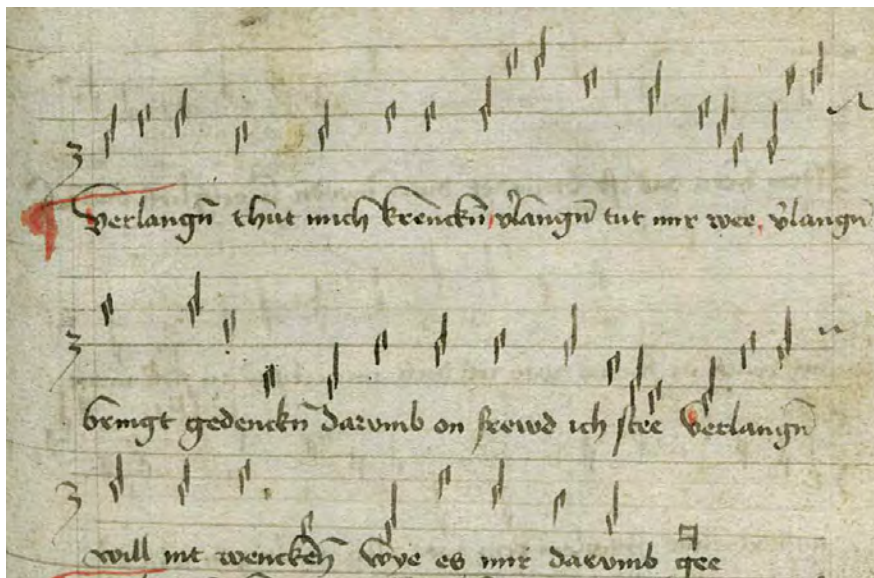 Verlangn̄ thut mich krenckn̄, v̓langn̄ tut mir wee, v̓langn̄
bringt gedenckn̄ darvmb on frewd ich stee verlangn̄
will nit wencken̄ wye es mir darvmb gee